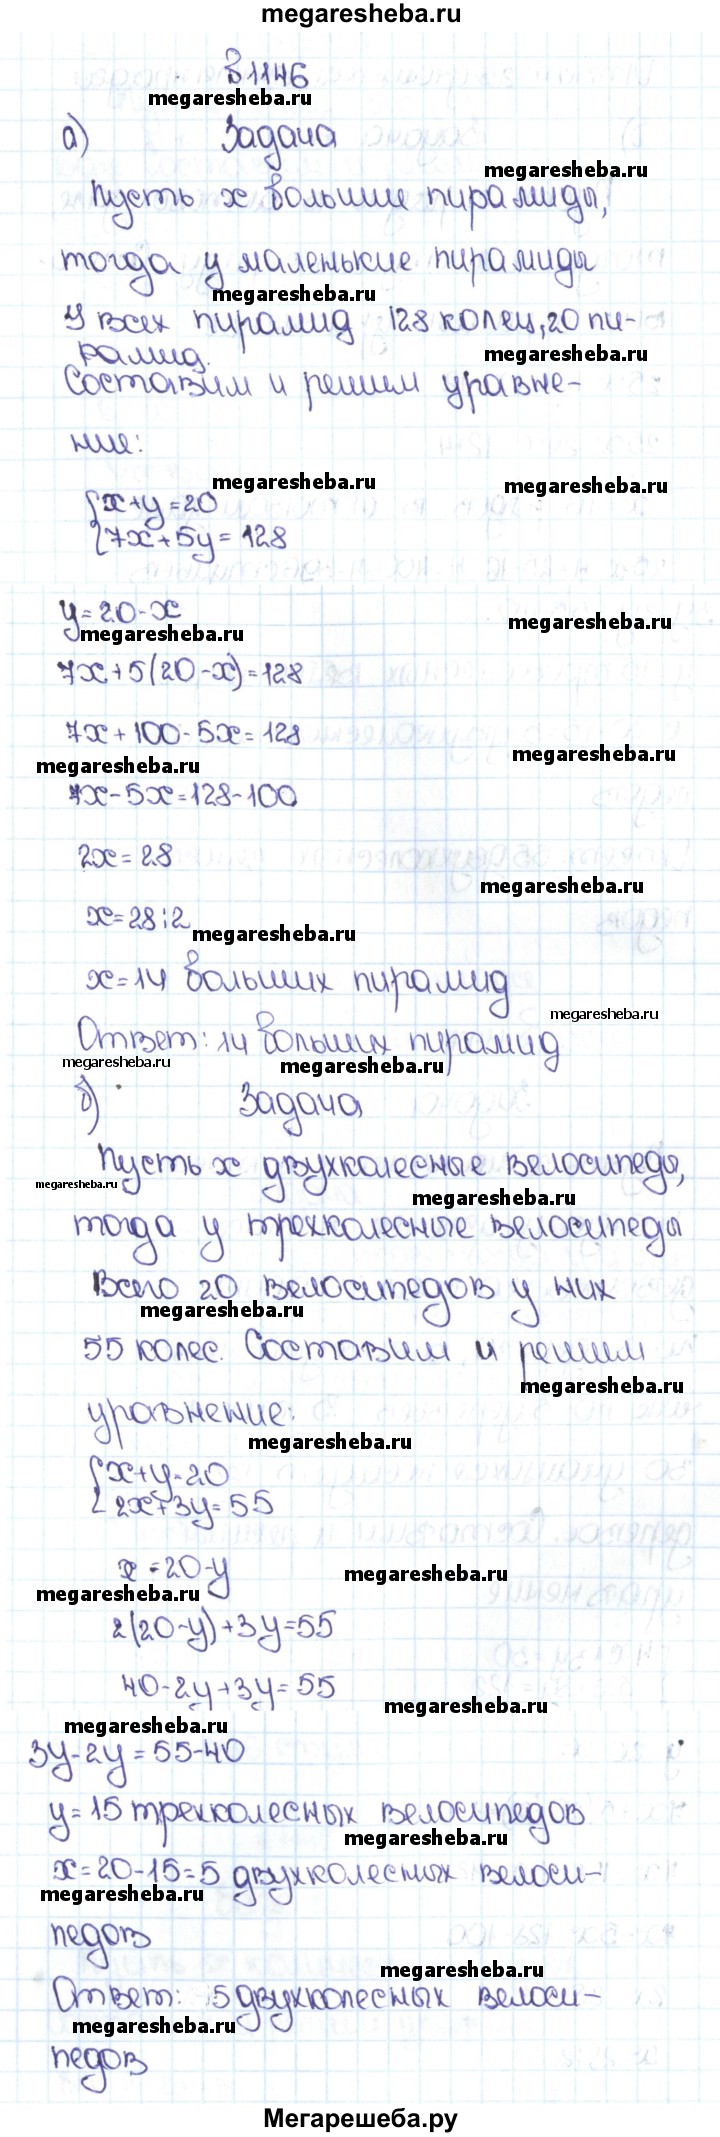 megaresheba.ru
В 1146
megaresheba.ru
а) Задача
megaresheba.ru
Пусть x большие пирамиды,
тогда y маленькие пирамиды
megaresheba.ru
У всех пирамид 128 колец, 20 пи-
megaresheba.ru
рамид.
Составим и решим уравне-
ние:
megaresheba.ru
megaresheba.ru
{x+y=20
{7x+5y=128
y=20-x
megaresheba.ru
megaresheba.ru
7x+5(20-x)=128
7x+100-5x=128
megaresheba.ru
megaresheba.ru
7x-5x=128-100
2x=28
megaresheba.ru
x=28:2
megaresheba.ru
x=14 больших пирамид
megaresheba.ru
Ответ: 14 больших пирамид
megaresheba.ru
megaresheba.ru
б) Задача
Пусть x двухколесные велосипеды,
megaresheba.ru
megaresheba.ru
тогда y трехколесные велосипеды
Всего 20 велосипедов у них
megaresheba.ru
55 колес. Составим и решим
megaresheba.ru
уравнение:
megaresheba.ru
{x+y=20
{2x+3y=55
x=20-y
megaresheba.ru
megaresheba.ru
2(20-y)+3y=55
40-2y+3y=55
megaresheba.ru
megaresheba.ru
3y-2y=55-40
y=15 трехколесных велосипедов
megaresheba.ru
x=20-15=5 двухколесных велоси-
megaresheba.ru
педов
megaresheba.ru
Ответ: 5 двухколесных велоси-
megaresheba.ru
педов
Мегарешеба.ру